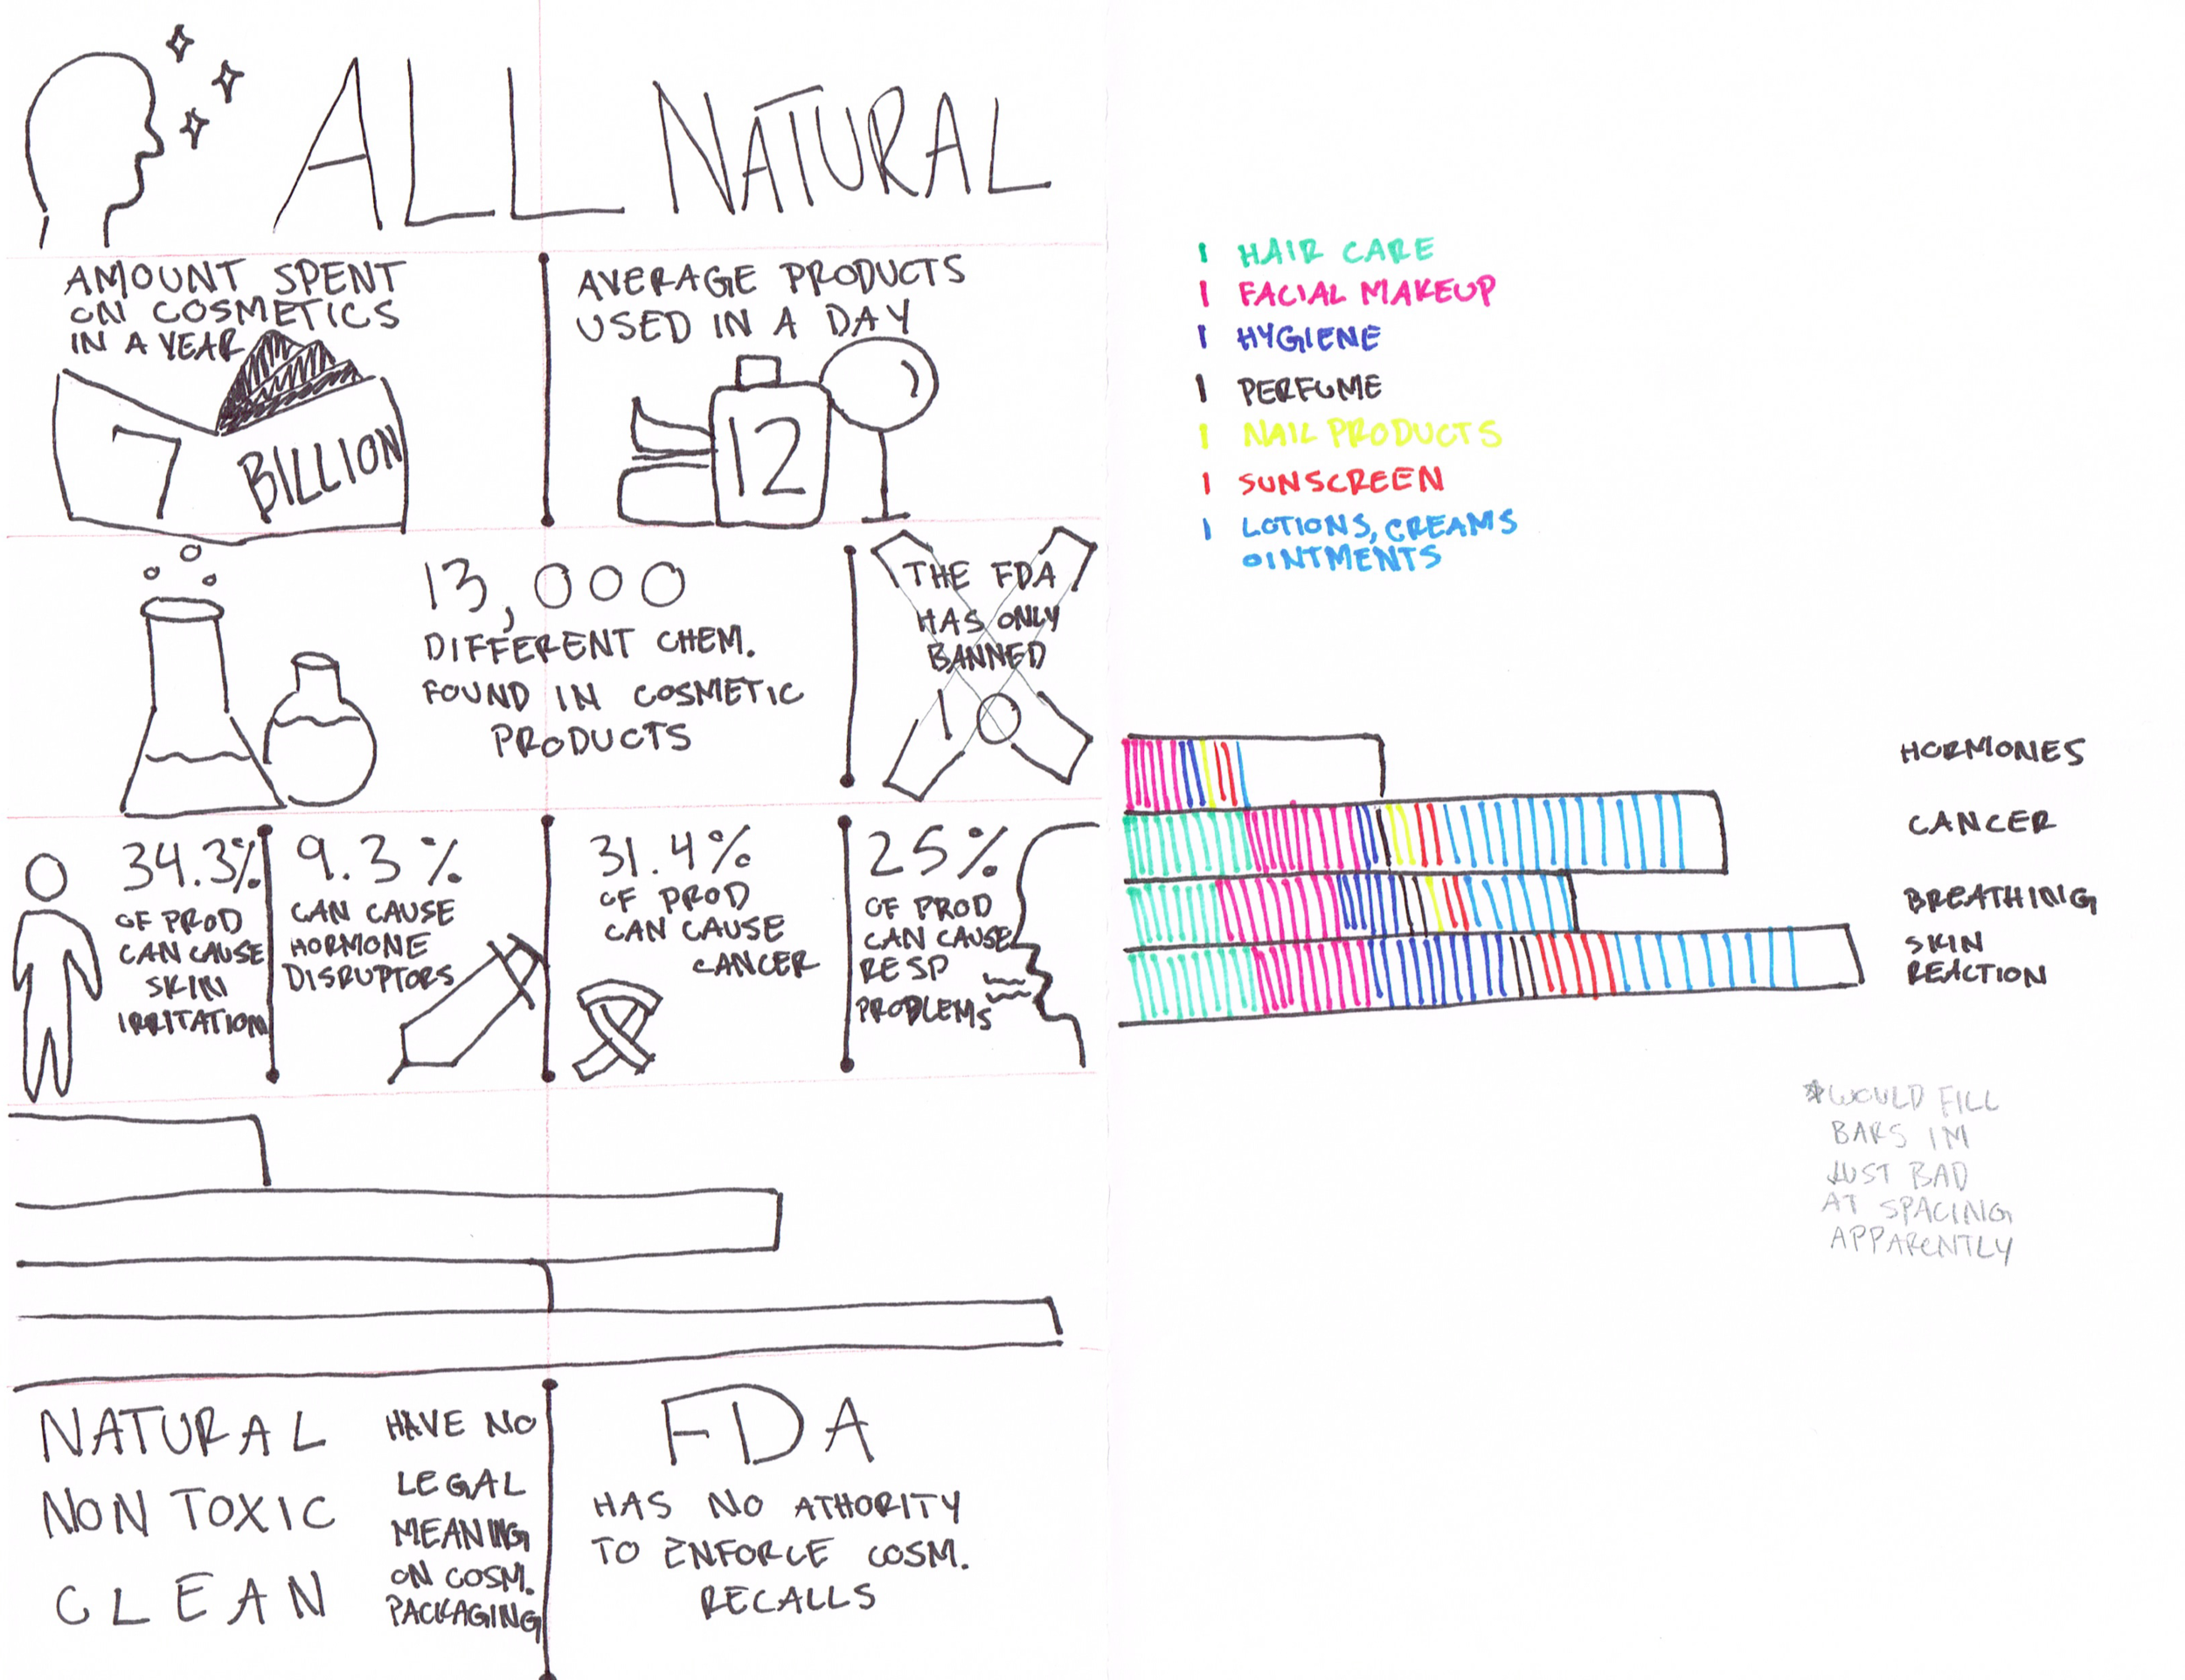 ALL NATURAL
AMOUNT SPENT
ON COSMETICS
IN A YEAR
7 BILLION
AVERAGE PRODUCTS
USED IN A DAY
12
13,000
DIFFERENT CHEM.
FOUND IN COSMETIC
PRODUCTS
THE FDA
HAS ONLY
BANNED
10
34.3%
OF PROD
CAN CAUSE
SKIN
IRRITATION
9.3%
CAN CAUSE
HORMONE
DISRUPTORS
31.4%
OF PROD
CAN CAUSE
CANCER
25%
OF PROD
CAN CAUSE
RESP
PROBLEMS
NATURAL
NON TOXIC
CLEAN
HAVE NO
LEGAL
MEANING
ON COSM.
PACKAGING
FDA
HAS NO ATHORITY
TO ENFORCE COSM.
RECALLS
HAIR CARE
FACIAL MAKEUP
HYGIENE
PERFUME
NAIL PRODUCTS
SUNSCREEN
LOTIONS, CREAMS
OINTMENTS
HORMONES
CANCER
BREATHING
SKIN
REACTION
*WOULD FILL
BARS IN
JUST BAD
AT SPACING
APPARENTLY